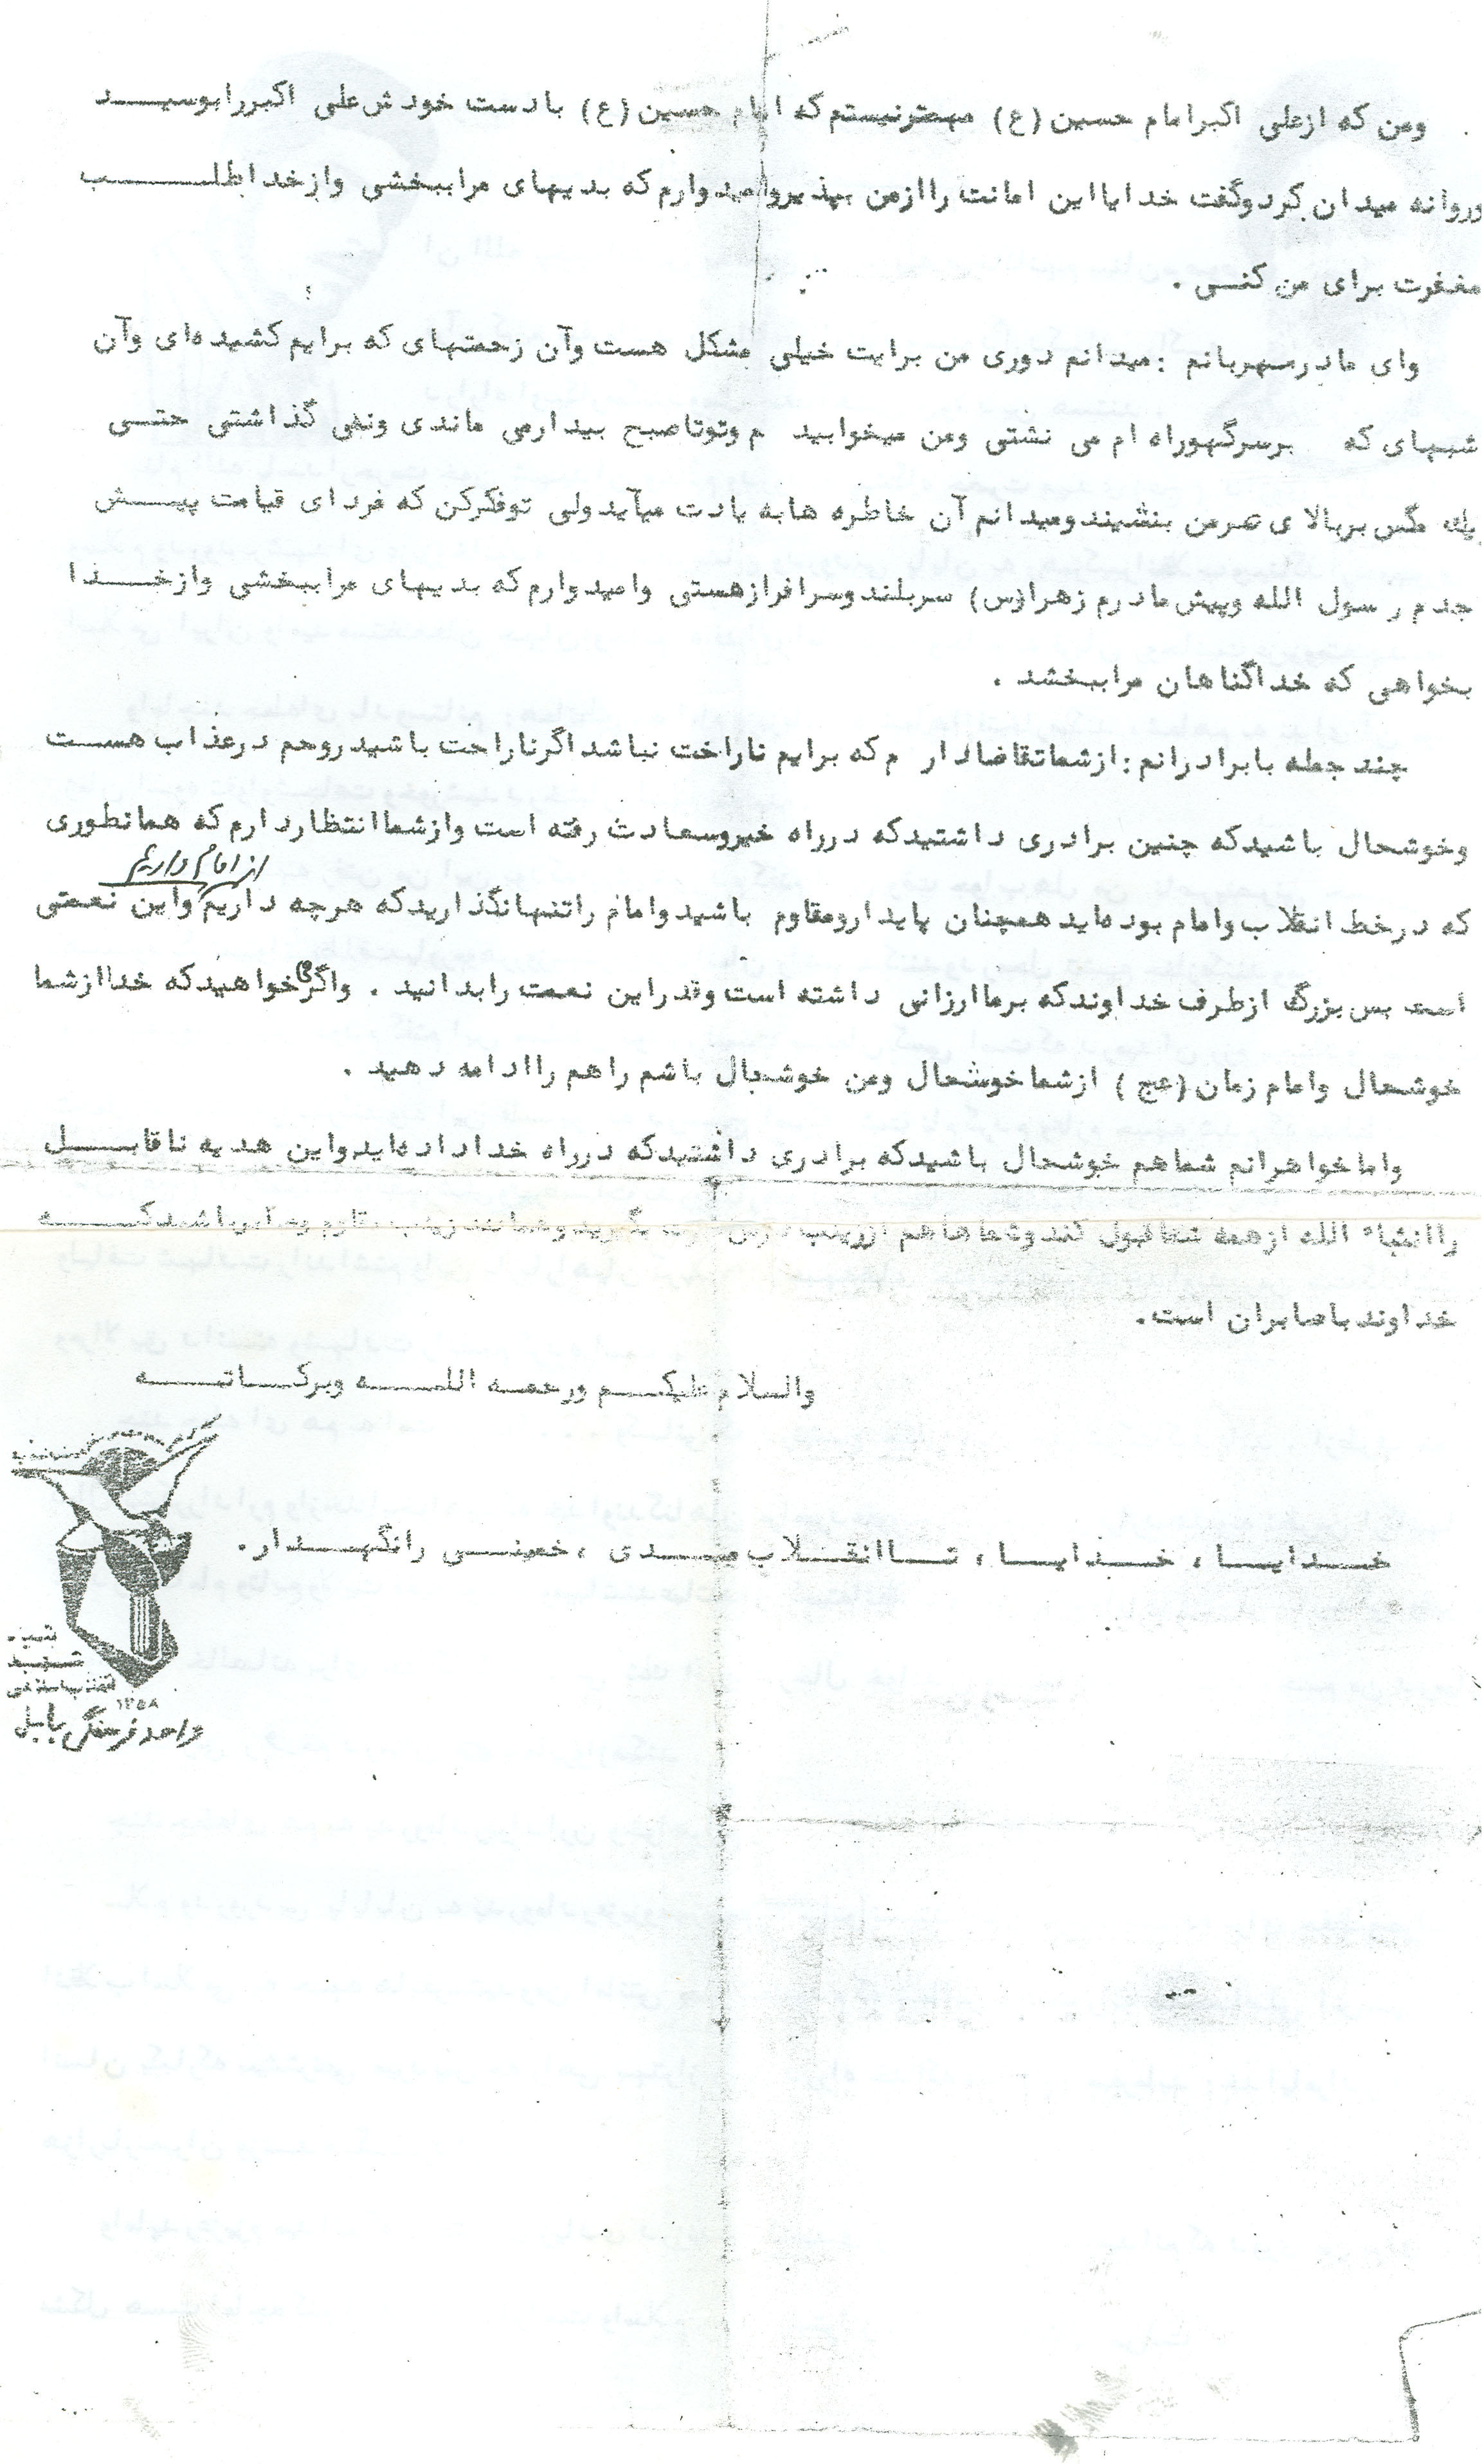 ومن که ازعلی اکبرامام حسین (ع) مهمترنیستم که امام حسین (ع) بادست خودش علی اکبررابوسیـــد
وروانه میدان کردوگفت خدایااین امانت راازمن بپذیروامیدوارم که بدیهای مراببخشی وازخداطلـــب
مغفرت برای من کنـی .
وای مادرمهربانم : میدانم دوری من برایت خیلی مشکل هست وآن زحمتهای که برایم کشیده‌ای وآن
شبهای که برسرگهوراه ام می نشتی ومن میخوابید م وتوتاصبح بیدارمی ماندی ونمی گذاشتی حتــی
یك مگس بربالا ی سرمن بنشیندومیدانم آن خاطره هابه یادت میآیدولی توفکرکن که فردای قیامت پیــش
جدم رسول الله وپیش مادرم زهرا(س) سربلندوسرافرازهستی وامیدوارم که بدیهای مراببخشی وازخــدا
بخواهی که خداگناهان مراببخشد .
چندجمله بابرادرانم : ازشماتقاضادار م که برایم ناراخت نباشداگرناراحت باشیدروحم درعذاب هســت
وخوشحال باشیدکه چنین برادری داشتیدکه درراه خیروسعادث رفته است وازشماانتظاردارم که همانطوری
از امام داریم
که درخط انقلاب وامام بوده‌ایدهمچنان پایدارومقاوم باشیدوامام راتنهانگذاریدکه هرچه داریم واین نعمتی
است بس بزرگ ازطرف خداوندکه برماارزانی داشته است وقدراین نعمت رابدانید . واگرمی خواهیدکه خداازشما
خوشحال وامام زمان (عج ) ازشماخوشحال ومن خوشحال باشم راهم راادامه دهید .
واماخواهرانم شماهم خوشحال باشیدکه برادری داشتیدکه درراه خداداده‌ایدواین هدیه ناقابـــل
راانشاء الله ازهمه شماقبول کندوشماهاهم اززینب درس بگیریدوهمانندزینب مقاوم باشیدکـــه
خداوندباصابران است.
والسلام علیکـــم ورحمه اللـــه وبرکـــاتـــه
خــدایــا ، خــدایــا ، تــاانقــلاب مهــدی ، خمینــی رانگهــدار.
شهید
انقلاب اسلامی
۱۳۵۸
واحد فرهنگی بابل